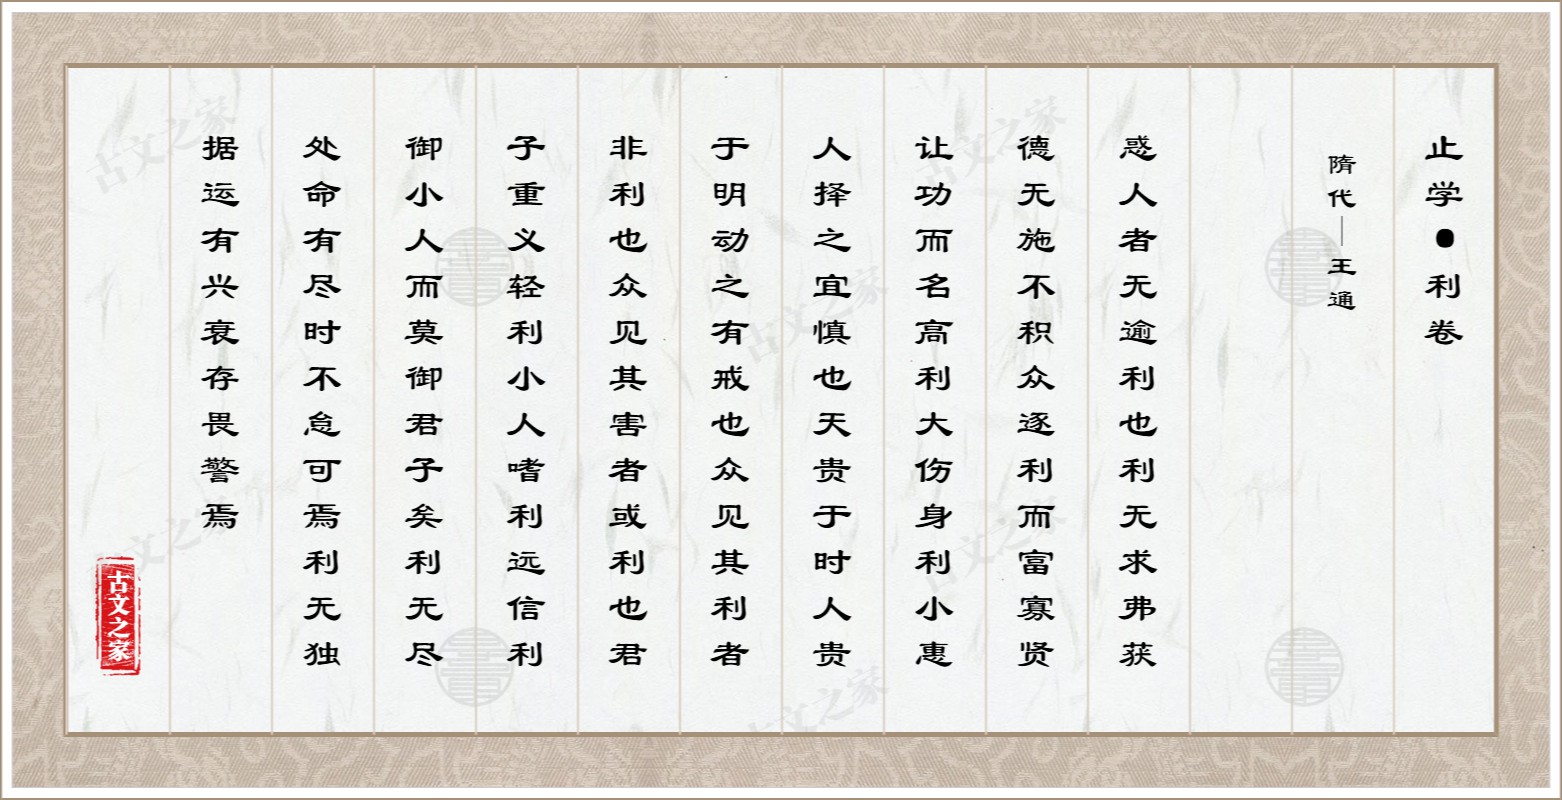 止学●利卷
隋代—王通
惑人者无逾利也利无求弗获
德无施不积众逐利而富寡贤
让功而名高利大伤身利小惠
人择之宜慎也天贵于时人贵
于明动之有戒也众见其利者
非利也众见其害者或利也君
子重义轻利小人嗜利远信利
御小人而莫御君子矣利无尽
处命有尽时不怠可焉利无独
据运有兴衰存畏警焉
古文之家
古文之家
古文之家
古文之家
古文之家
古文之家
古文之家